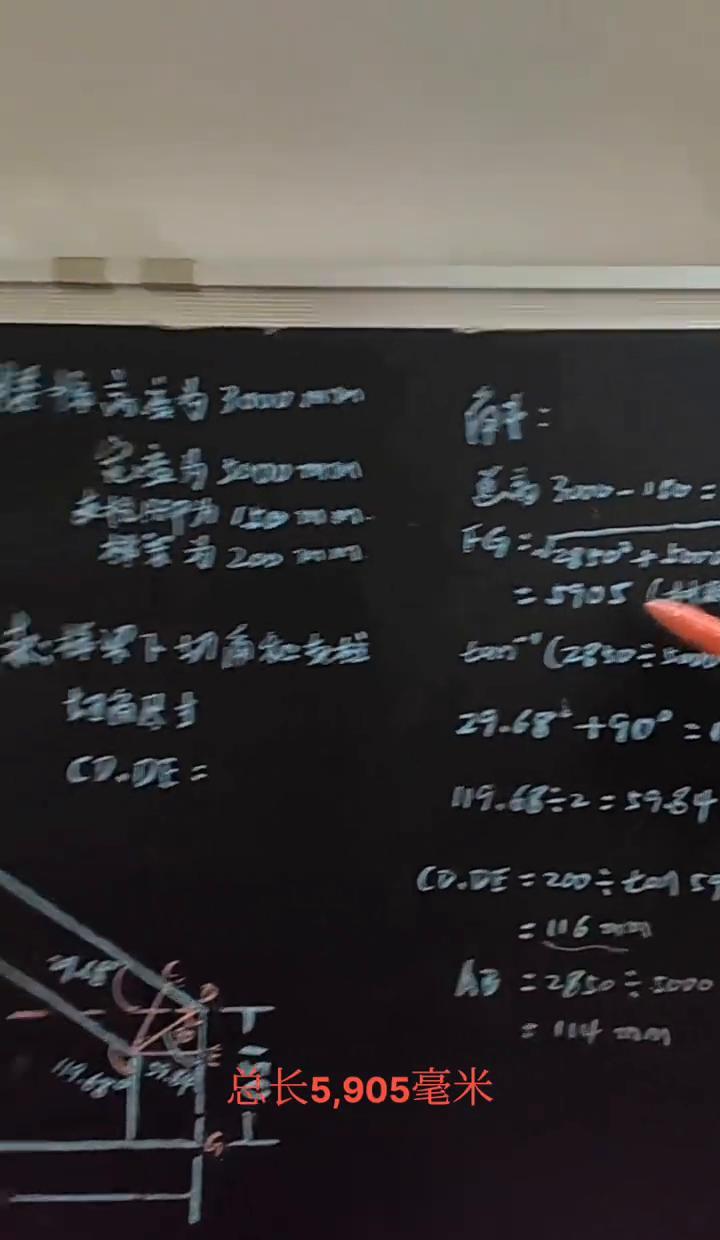 楼梯高度为3000mm
宽度为5000mm
支柱脚为150mm
梯梁为200mm
求梯梁下切角和支柱
切角尺寸
CD.DE=
解:
总高3000-150=
FG=√2850²+5000
=5905
tan⁻¹(2850÷5000
29.68°+90°=1
119.68÷2=59.84
CD.DE=200÷tan59
=116mm
AB=2850÷5000
=114mm
29.68°
C
D
E
119.68°
59.84
G
总长5,905毫米